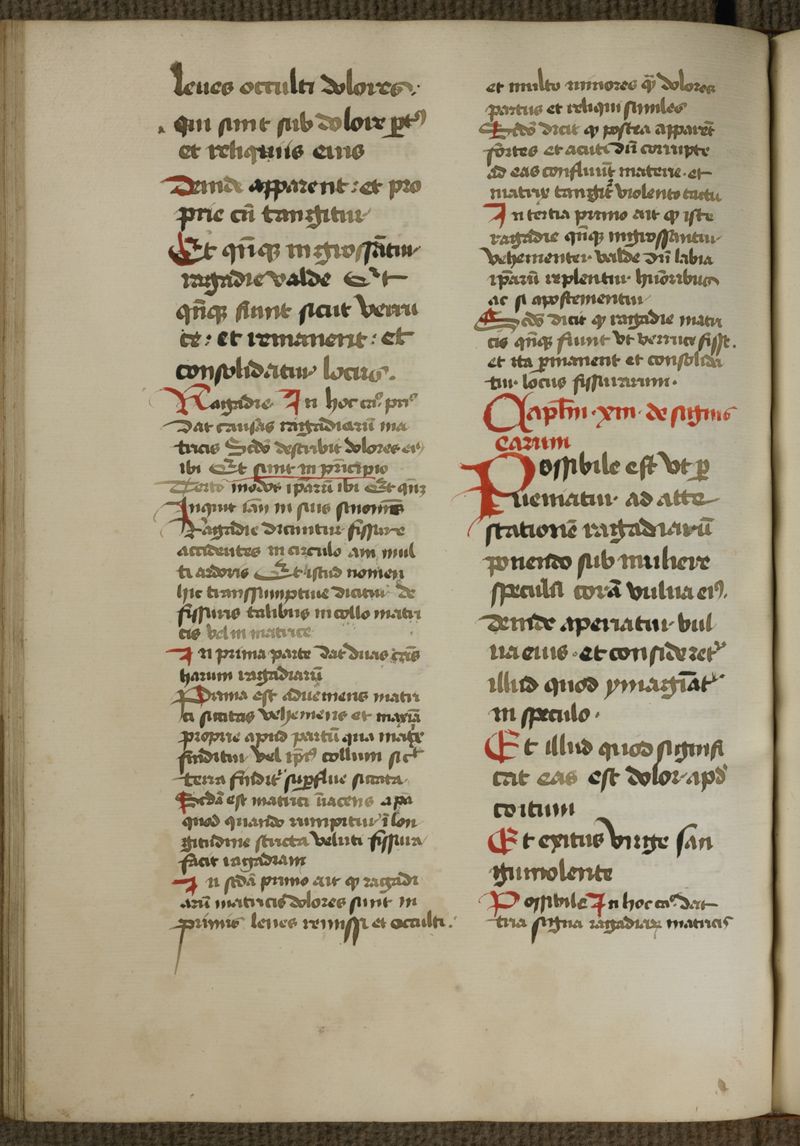 leues occulti dolores.
qui sunt sub dolore pt9
et reliquiis eius
Deinde apparent: et pro
prie cū tangitur
Et qn̄qꝫ ingrossātur
ragadie valde Et
qn̄qꝫ fiunt sicut verru
ce: et remanent: et
consolidatur locus.
Ragadie. In hoc ca. pri9
dat causas ragadiarū ma
tricis Scdo describit dolores ei9
ibi Et sunt in prīcipio
Tertio modos ipārū ibi Et qn̄qꝫ
Inquit Ian in suis sinonīs
Ragadie dicuntur fissure
accidentes in circulo ani mul
ti ardoris Et istud nomen
hic transsumptiue dicitur de
fissuris talibus in collo matri
cis vel in matrice
In prima parte dat duas cās
harum ragadiarū
Prima est adueniens matri
ci siccitas vehemens et maxīa
proprie apud partū qua matrix
finditur vel ipi9 collum sict
terra findit superflue siccata
Scda est matrici
quod quando rumpitur ī lon
gitudine stricta veluti fissura
facit ragadiam
In scda primo ait ꝙ ragadi
arū matricis dolores sunt in
primis leues remissi et occulti.
et multo minores qͣ dolores
partus et reliqui similes
Scdo dicit ꝙ postea apparēt
fortes et acuti dū corrupte
ad eas confluūt materie et
matrix tangit violento tactu
In tertia primo ait ꝙ iste
ragadie qn̄qꝫ ingrossantur
vehementer valde dū labia
ipārū replentur hūoribus
ac si apostementur
Scdo dicit ꝙ ragadie matri
cis qn̄qꝫ fiunt vt verruce fisse.
et ita pmanent et consolida
tur locus fissurarum.
Caplm. xiii. de signis
earum
Possibile est vt p
ueniatur ad atte
stationē ragadiarū
ponendo sub muliere
speculū corā vulua ei9.
deinde aperiatur vul
ua eius. et consideret
illud quod ymagīat
in speculo.
Et illud quod signifi
cat eas est dolor apd
coitum
Et exitus virge san
guinolente
Possibile In hoc ca. dat
tria signa ragadiaꝝ matricis